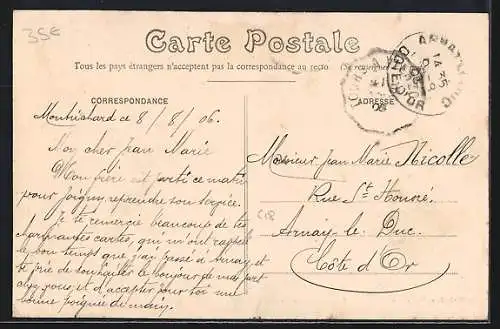 35€
Carte Postale
Tous les pays étrangers n'acceptent pas la correspondance au recto.
CORRESPONDANCE
ADRESSE
CÔTE-D'OR
Montbéliard ce 8/8/06.
Mon cher Jean Marie
Mon frère est parti ce matin
pour Joigny reprendre son service.
Je te remercie beaucoup de tes
charmantes cartes, qui m'ont rappelé
le bon temps que j'ai passé à Arnay et
te prie de souhaiter le bonjour de ma part
chez vous, et d'accepter pour toi une
bonne poignée de main.
Monsieur Jean Marie Nicolle
Rue St Honoré.
Arnay-le-Duc.
Côte d'Or